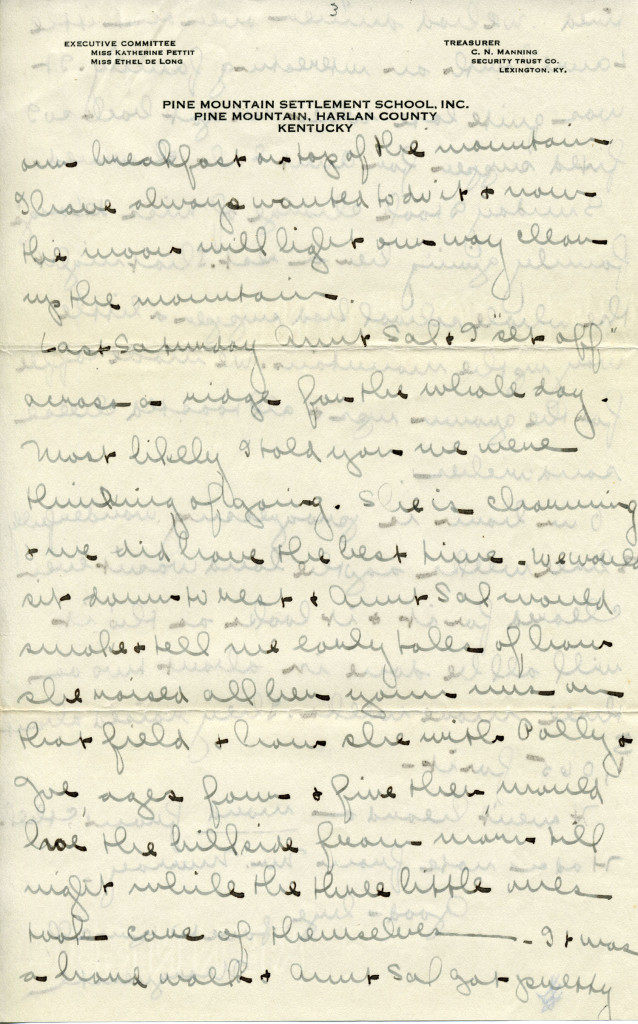 3
EXECUTIVE COMMITTEE
MISS KATHERINE PETTIT
MISS ETHEL DE LONG
TREASURER
C. N. MANNING
SECURITY TRUST CO.
LEXINGTON, KY.
PINE MOUNTAIN SETTLEMENT SCHOOL, INC.
PINE MOUNTAIN, HARLAN COUNTY
KENTUCKY
our breakfast on top of the mountain
I have always wanted to do it & now
the moon will light our way clear
up the mountain.
Last Saturday Aunt Sal & I "set off"
across a ridge for the whole day.
Most likely I told you we were
thinking of going. She is charming
& we did have the best time. We would
sit down to rest & Aunt Sal would
smoke & tell me early tales of how
she raised all her young uns on
that field & how she with Polly &
Joe, ages four & five then, would
hoe the hillside from morn till
night while the three little ones
took care of themselves. It was
a hard walk & Aunt Sal got pretty